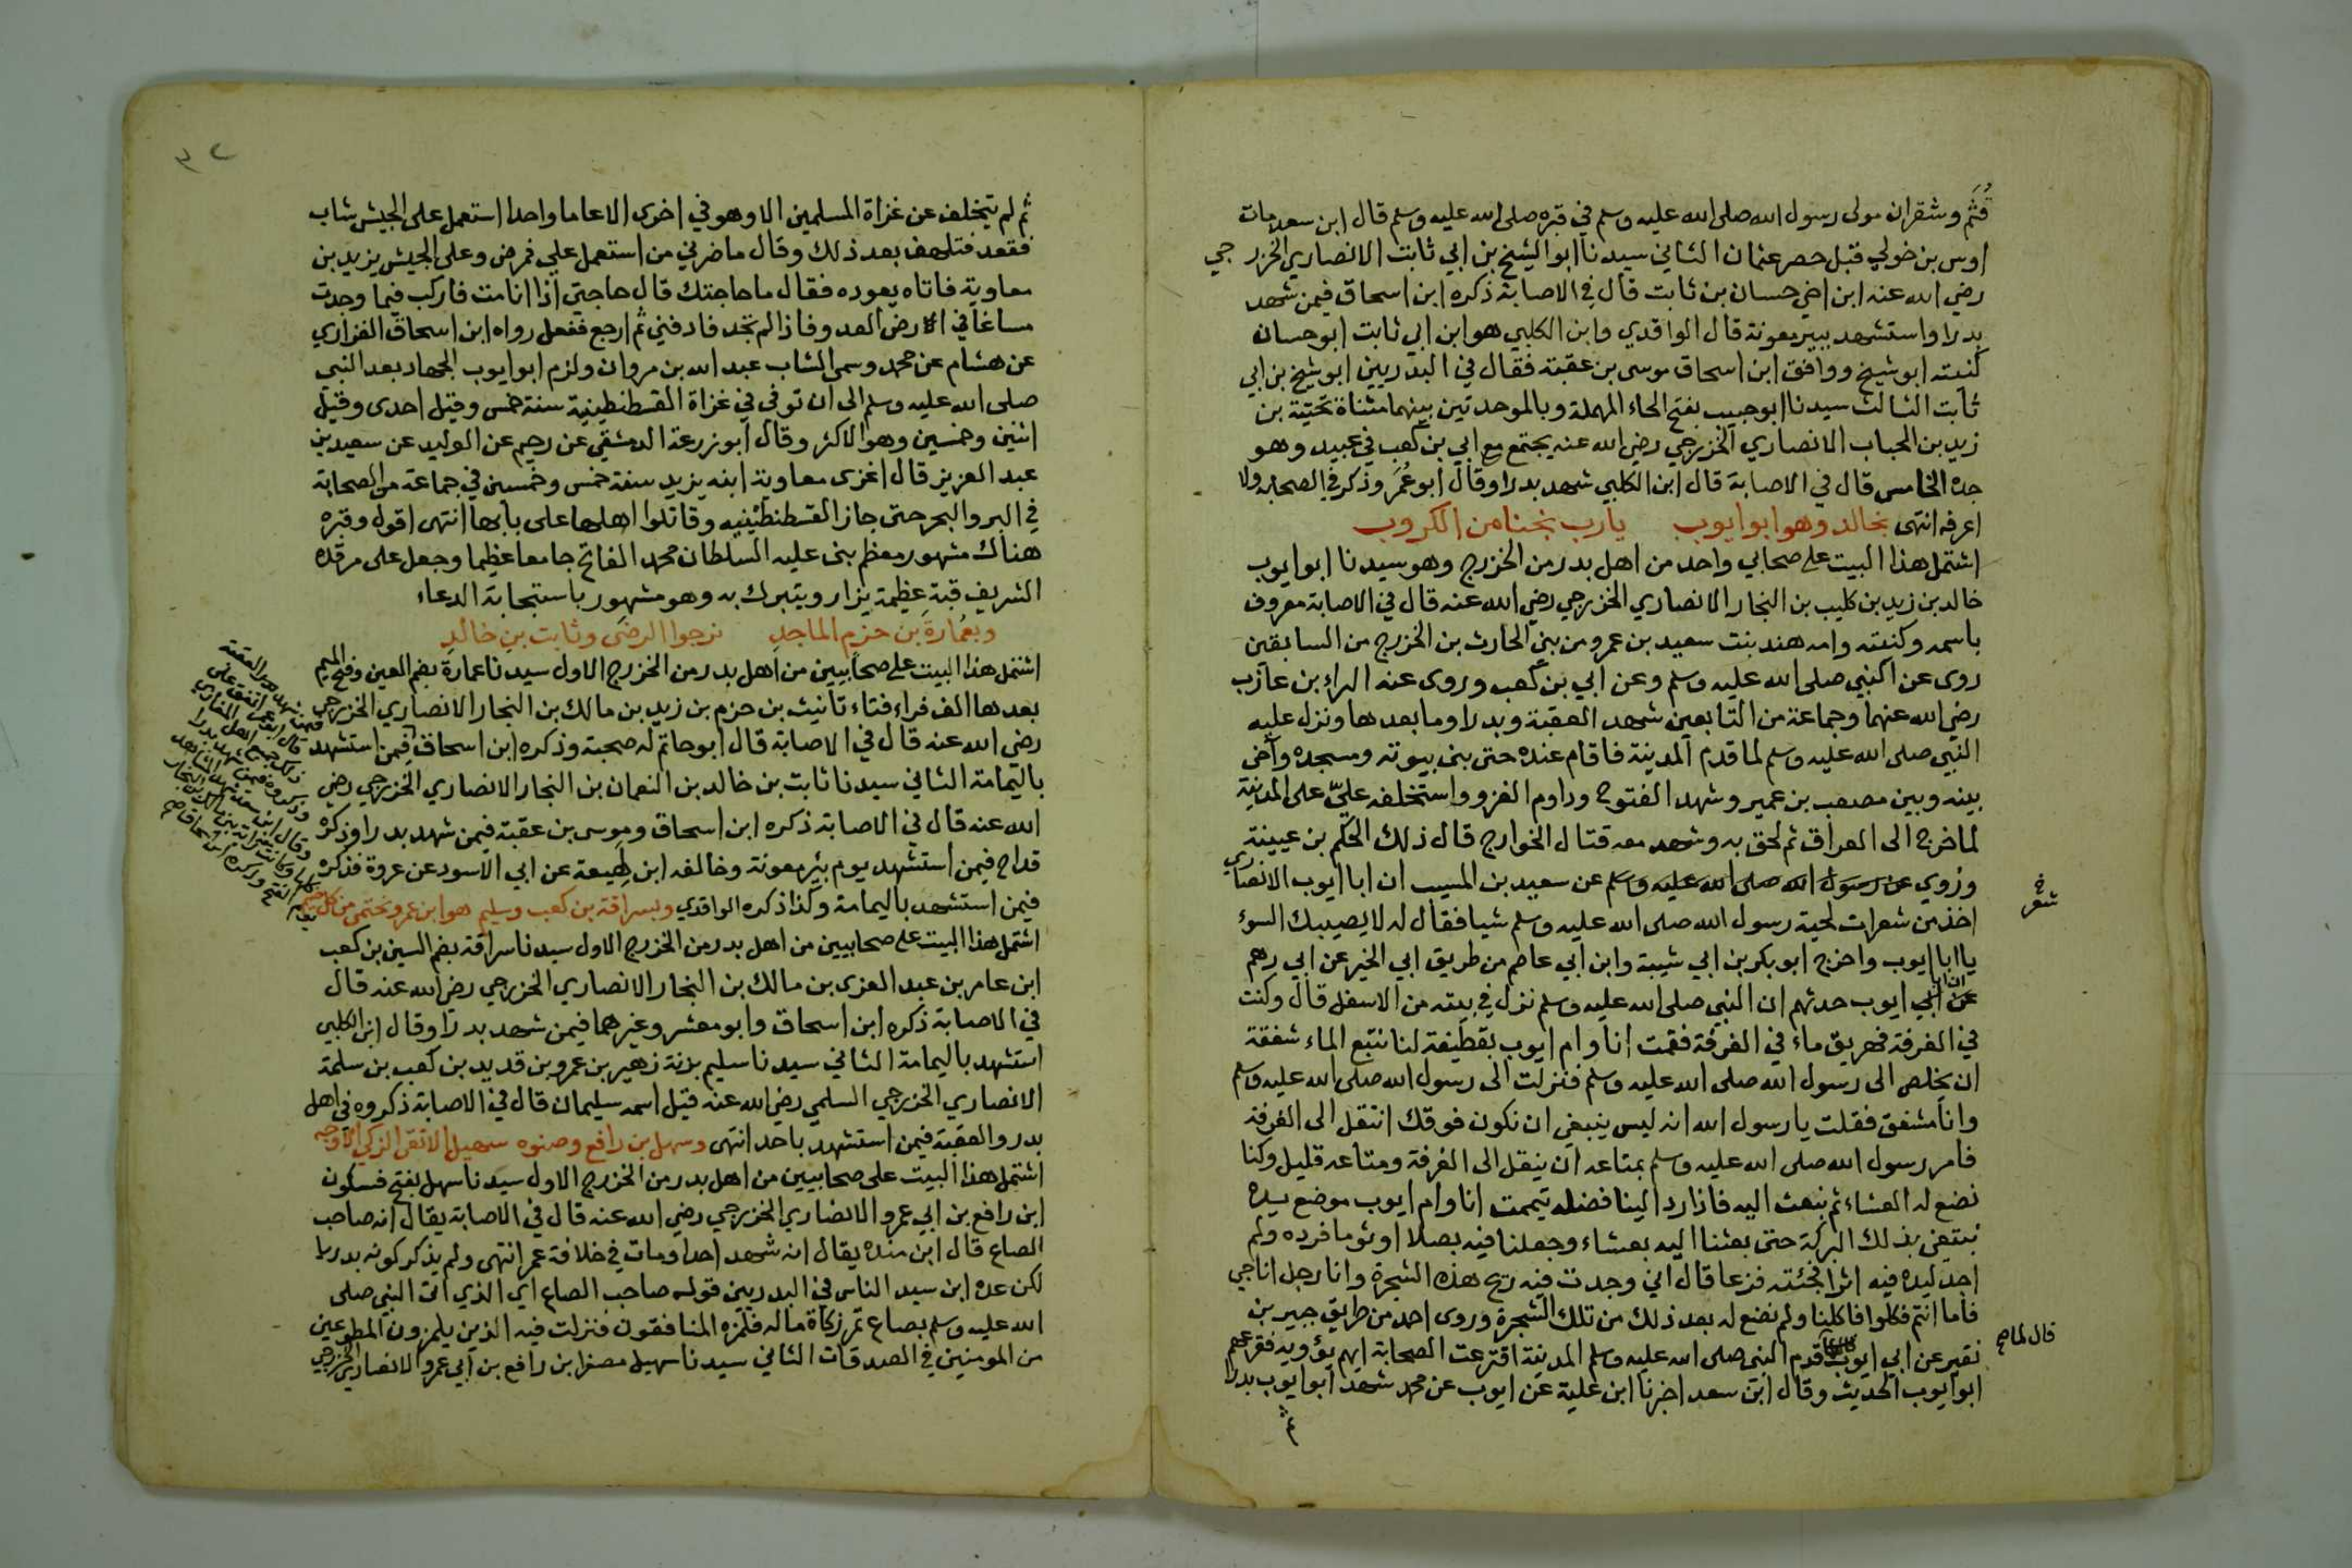 قُثَم وشقران مولى رسول الله صلى الله عليه وسلم في قبره صلى الله عليه وسلم قال ابن سعد مات
اوس بن خولي قبل حصر عثمان الثاني سيدنا ابو الشيخ بن ابي ثابت الانصاري الخزرجي
رضي الله عنه ابن اخي حسان بن ثابت قال في الاصابة ذكره ابن اسحاق فيمن شهد
بدرا واستشهد ببير معونة قال الواقدي وابن الكلبي هو ابن ابي ثابت ابو حسان
كنيته ابو شيخ ووافق ابن اسحاق موسى بن عقبة فقال في البدريين ابو شيخ بن ابي
ثابت الثالث سيدنا ابو حبيب بفتح الحاء المهملة وبالموحدتين بينهما مثناة تحتية بن
زيد بن الحباب الانصاري الخزرجي رضي الله عنه يجتمع مع ابي بن كعب في عبيد وهو
جده الخامس قال في الاصابة قال ابن الكلبي شهد بدرا وقال ابو عُمَر وذكر في الصحابه ولا
اعرفه انتهى بخالد وهو ابو ايوب يارب نجنا من الكروب
اشتمل هذا البيت على صحابي واحد من اهل بدر من الخزرج وهو سيدنا ابو ايوب
خالد بن زيد بن كليب بن النجار الانصاري الخزرجي رضي الله عنه قال في الاصابة معروف
باسمه وكنيته وامه هند بنت سعيد بن عمرو من بني الحارث بن الخزرج من السابقين
روى عن النبي صلى الله عليه وسلم وعن ابي بن كعب وروى عنه البراء بن عازب
رضي الله عنهما وجماعة من التابعين شهد العقبة وبدرا وما بعدها ونزل عليه
النبي صلى الله عليه وسلم لما قدم المدينة فاقام عنده حتى بنى بيوته ومسجده وآخى
بينه وبين مصعب بن عمير وشهد الفتوح وداوم الغزو واستخلفه عليّ على المدينة
لما خرج الى العراق ثم لحق به وشهد معه قتال الخوارج قال ذلك الحكم بن عيينة
وروي عن رسول الله صلى الله عليه وسلم عن سعيد بن المسيب ان ابا ايوب الانصاري
اخذ من شعرات لحية رسول الله صلى الله عليه وسلم شيا فقال له لا يصيبك السوء
يا ابا ايوب واخرج ابو بكر بن ابي شيبة وابن ابي عاصم من طريق ابي الخير عن ابي رهم
ان ابا ايوب حدثهم ان النبي صلى الله عليه وسلم نزل في بيته من الاسفل قال وكنت
في الغرفة فهريق ماء في الغرفة فقمت انا وام ايوب بقطيفة لنا نتبع الماء شفقة
ان يخلص الى رسول الله صلى الله عليه وسلم فنزلت الى رسول الله صلى الله عليه وسلم
وانا مشفق فقلت يا رسول الله انه ليس ينبغي ان نكون فوقك انتقل الى الغرفة
فامر رسول الله صلى الله عليه وسلم بمتاعه ان ينقل الى الغرفة ومتاعه قليل وكنا
نضع له العشاء ثم نبعث اليه فاذا رد الينا فضله تيممت انا وام ايوب موضع يده
نبتغي بذلك البركة حتى بعثنا اليه بعشاء وجعلنا فيه بصلا او ثوما فرده ولم
اجد ليده فيه اثرا فجئته فزعا قال اني وجدت فيه ريح هذه الشجرة وانا رجل اناجي
فاما انتم فكلوا فاكلنا ولم نضع له بعد ذلك من تلك الشجرة وروى احمد من طريق جبير بن
نفير عن ابي ايوب قدم النبي صلى الله عليه وسلم المدينة اقترعت الصحابة ايهم يؤويه فقرعهم
قال لما
ابو ايوب الحديث وقال ابن سعد اخبرنا ابن علية عن ايوب عن محمد شهد ابو ايوب بدرا
ثم
٣٢
ثم لم يتخلف عن غزاة المسلمين الا وهو في اخرى الا عاما واحدا استعمل على الجيش شاب
فقعد فتلهف بعد ذلك وقال ما ضرني من استعمل علي فمرض وعلى الجيش يزيد بن
معاوية فاتاه يعوده فقال ما حاجتك قال حاجتي اذا انا مت فاركب فيما وجدت
مساغا في الارض العدو فاذا لم تجد فادفني ثم ارجع ففعل رواه ابن اسحاق الفزاري
عن هشام عن محمد وسمى الشاب عبد الله بن مروان ولزم ابو ايوب الجهاد بعد النبي
صلى الله عليه وسلم الى ان توفي في غزاة القسطنطينية سنة خمس وقيل احدى وقيل
اثنين وخمسين وهو الاكثر وقال ابو زرعة الدمشقي عن رحيم عن الوليد عن سعيد بن
عبد العزيز قال اغزى معاوية ابنه يزيد سنة خمس وخمسين في جماعة من الصحابة
في البر والبحر حتى جاز القسطنطينيه وقاتلوا اهلها على بابها انتهى اقول وقبره
هناك مشهور معظم بنى عليه السلطان محمد الفاتح جامعا عظيما وجعل على مرقده
الشريف قبة عظيمة يزار ويتبرك به وهو مشهور باستجابة الدعاء
وبعُمارةَ بن حزم الماجدِ نرجوا الرضى وثابت بن خالدِ
اشتمل هذا البيت على صحابيين من اهل بدر من الخزرج الاول سيدنا عمارة بضم العين وفتح الميم
بعدها الف فراء فتاء تانيث بن حزم بن زيد بن مالك بن النجار الانصاري الخزرجي
رضي الله عنه قال في الاصابة قال ابو حاتم له صحبة وذكره ابن اسحاق فيمن استشهد
باليمامة الثاني سيدنا ثابت بن خالد بن النعمان بن النجار الانصاري الخزرجي رضي
الله عنه قال في الاصابة ذكره ابن اسحاق وموسى بن عقبة فيمن شهد بدرا وذكره
قداح فيمن استشهد يوم بئر معونة وخالفه ابن لهيعة عن ابي الاسود عن عروة فذكره
فيمن استشهد باليمامة وكذا ذكره الواقدي وبسراقة بن كعب وسليم هو ابن عمرو نحتمى من كل
اشتمل هذا البيت على صحابيين من اهل بدر من الخزرج الاول سيدنا سراقة بضم السين بن كعب
ابن عامر بن عبد العزى بن مالك بن النجار الانصاري الخزرجي رضي الله عنه قال
في الاصابة ذكره ابن اسحاق وابو معشر وغيرهما فيمن شهد بدرًا وقال ابن الكلبي
استشهد باليمامة الثاني سيدنا سليم بزنة زهير بن عمرو بن قديد بن كعب بن سلمة
الانصاري الخزرجي السلمي رضي الله عنه قيل اسمه سليمان قال في الاصابة ذكروه في اهل
بدر والعقبة فيمن استشهد باحد انتهى وسهل بن رافع وصنوه سهيل الاتقى الزكي الاوجه
اشتمل هذا البيت على صحابيين من اهل بدر من الخزرج الاول سيدنا سهل بفتح فسكون
ابن رافع بن ابي عمرو الانصاري الخزرجي رضي الله عنه قال في الاصابة يقال انه صاحب
الصاع قال ابن منده يقال انه شهد احدا ومات في خلافة عمر انتهى ولم يذكر كونه بدريا
لكن عده ابن سيد الناس في البدريين قوله صاحب الصاع اي الذي اتى النبي صلى
الله عليه وسلم بصاع تمر زكاة ماله فلمزه المنافقون فنزلت فيه الذين يلمزون المطوعين
من المومنين في الصدقات الثاني سيدنا سهيل مصغرا بن رافع بن ابي عمرو الانصاري الخزرجي